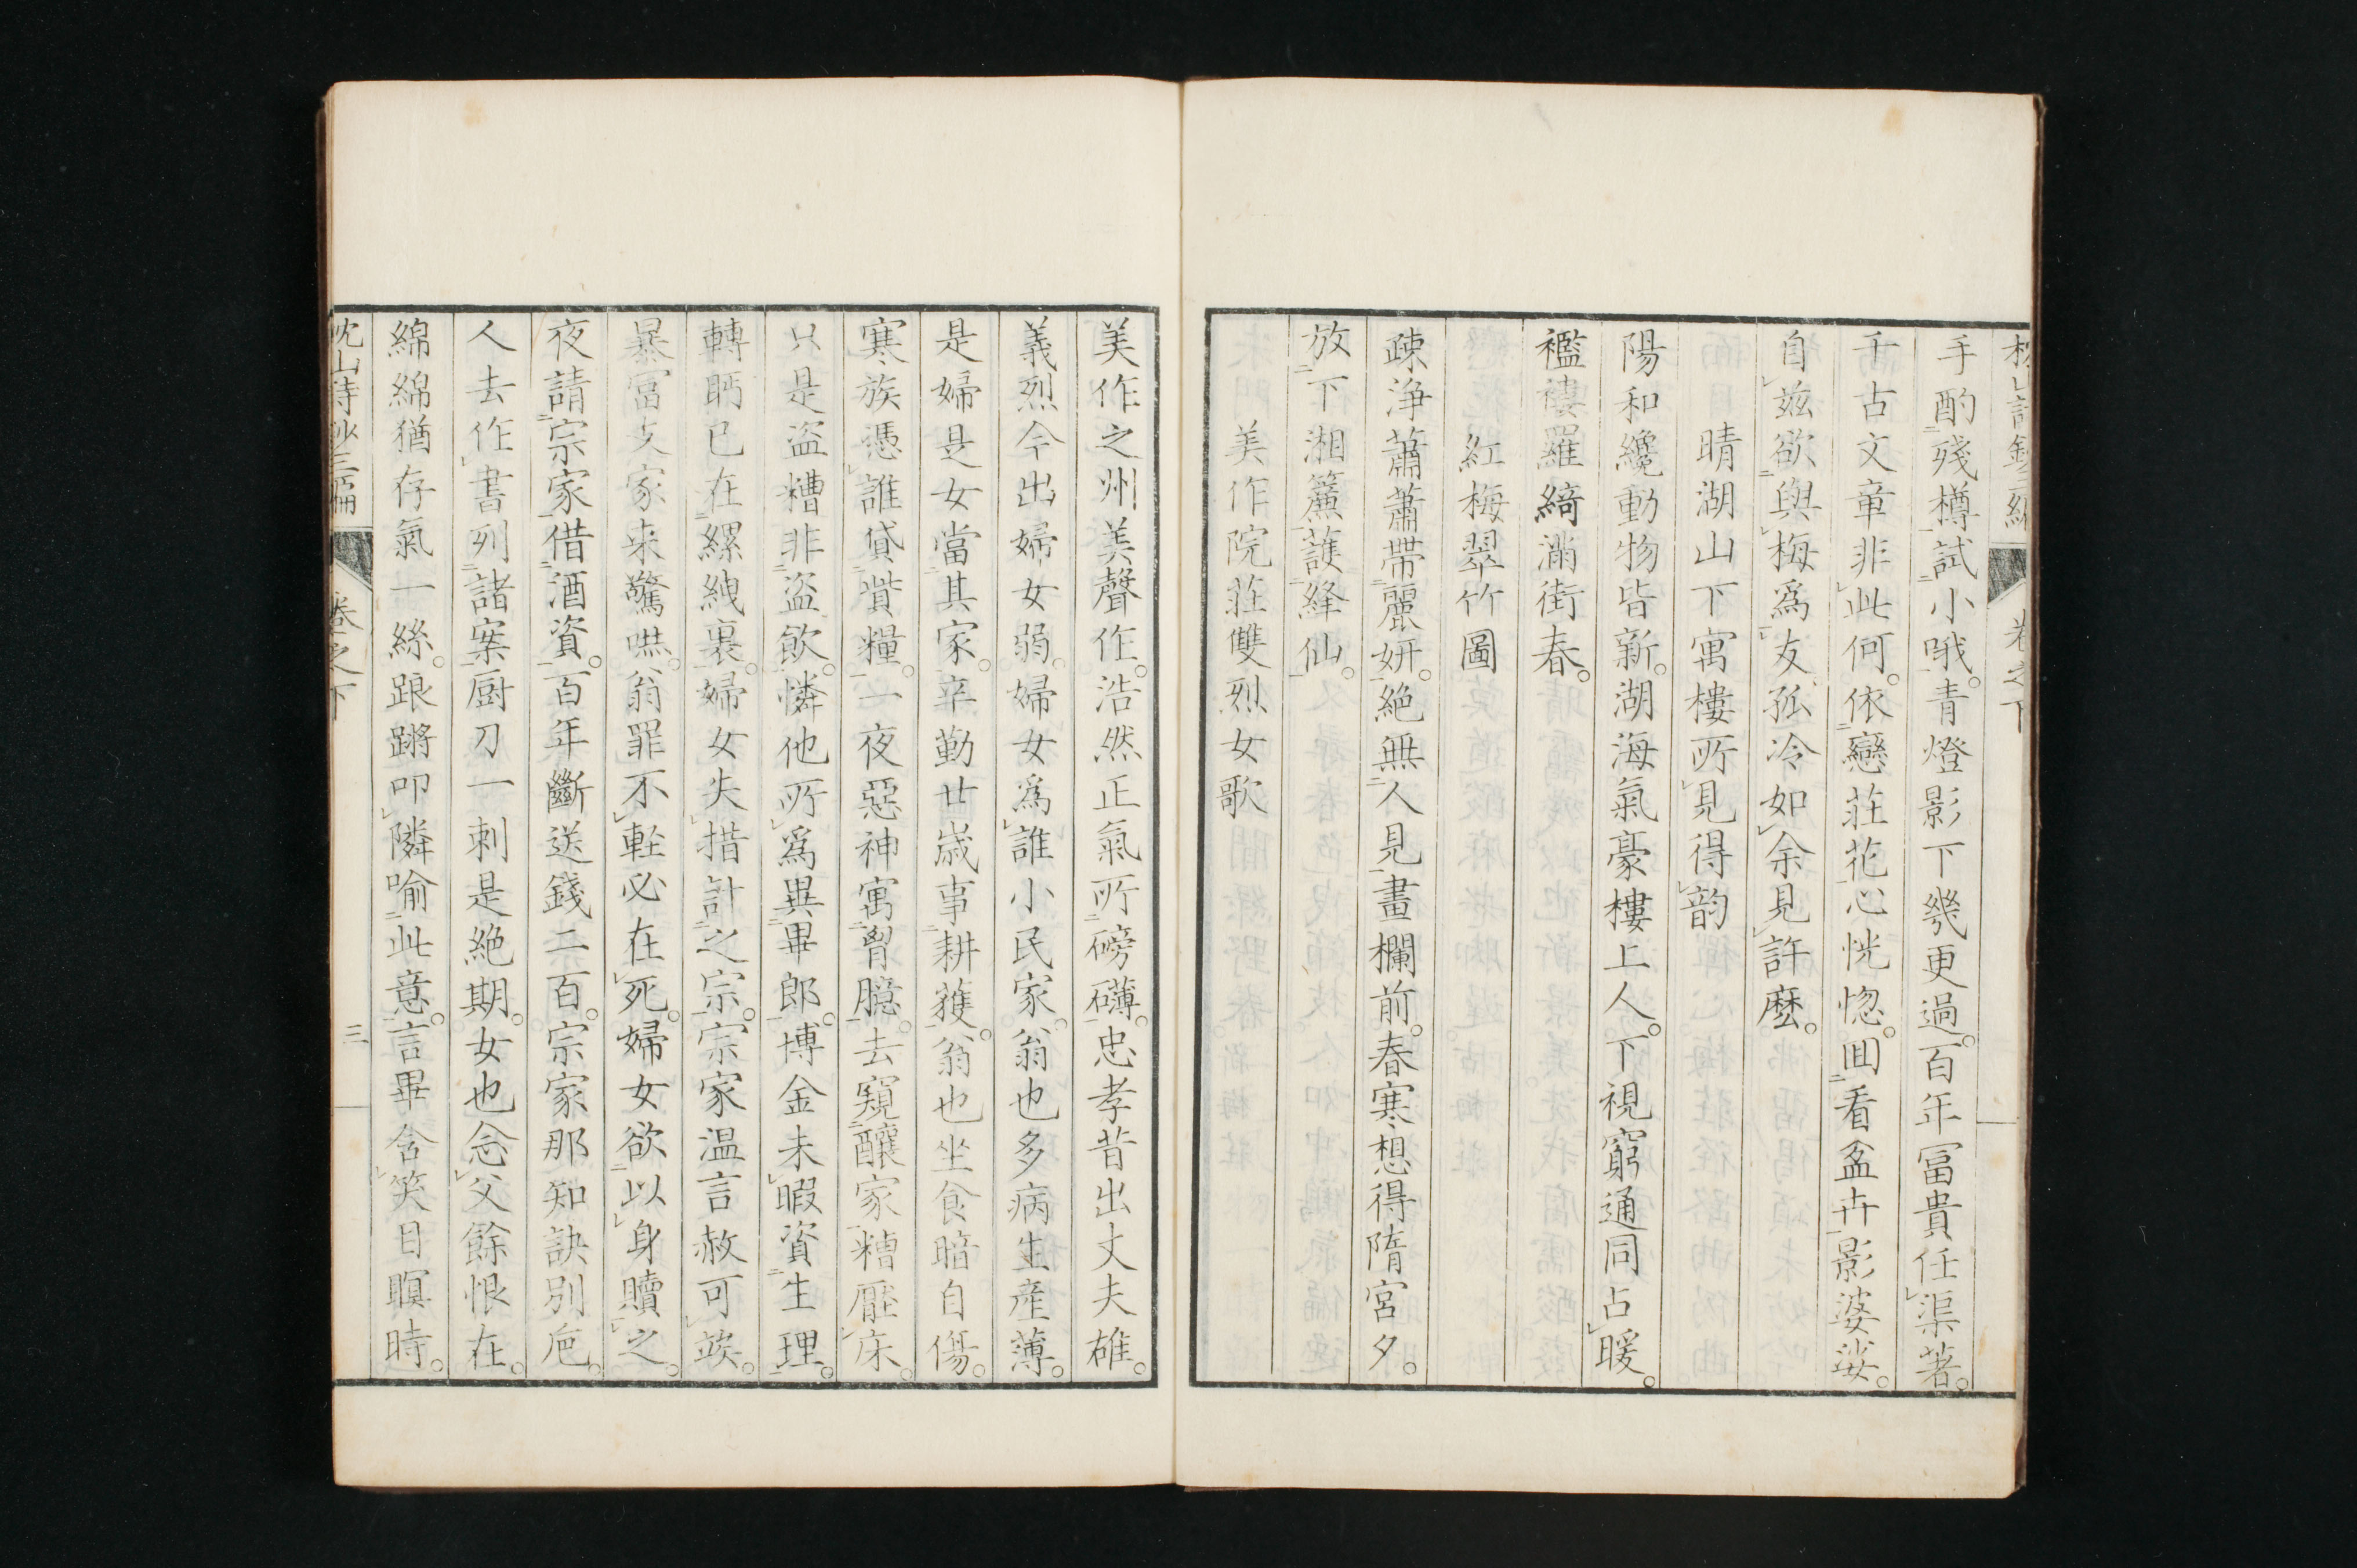 手酌殘樽試小哦。青燈影下幾更過。百年冨貴任渠著。
千古文章非此何。依戀莊花心恍惚。囬看盆卉影婆娑。
自茲欲與梅爲友孤冷如余見許麼。
晴湖山下寓樓所見得韵
陽和纔動物皆新。湖海氣豪樓上人。下視窮通同占暖。
襤褸羅綺滿街春。
紅梅翠竹圖
疎淨蕭蕭帶麗妍。絕無人見畫欄前。春寒想得隋宮夕。
放下湘簾護絳仙。
美作院莊雙烈女歌
美作之州美聲作。浩然正氣所磅礴。忠孝昔出丈夫雄。
義烈今出婦女弱。婦女爲誰小民家。翁也多病生產薄。
是婦是女當其家。辛勤廿歲事耕蓻。翁也坐食暗自傷。
寒族憑誰貸貲糧。一夜惡神寓胷臆。去窺釀家糟壓床。
只是盜糟非盜飲。憐他所爲異畢郎。博金未暇資生理。
轉眄已在縲絏裏。婦女失措計之宗。宗家温言赦可竢。
暴冨支家来驚嚇。翁罪不輕必在死。婦女欲以身贖之。
夜請宗家借酒資。百年斷送錢二百。宗家那知訣別巵。
人去作書列諸案。厨刀一刺是絕期。女也念父餘恨在。
綿綿猶存氣一絲。踉蹡叩隣喻此意。言畢含笑目瞑時。
卷之下
三